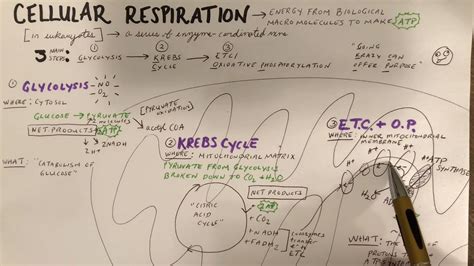 CELLULAR RESPIRATION → ENERGY FROM BIOLOGICAL
MACROMOLECULES TO MAKE ATP
[in eukaryotes] → a series of enzyme-
3 MAIN STEPS: ① GLYCOLYSIS → ② KREBS CYCLE → ③ ETC / OXIDATIVE PHOSPHORYLATION
"GOING KRAZY CAN OFFER PURPOSE"
① GLYCOLYSIS - NO O2
WHERE: CYTOSOL
GLUCOSE → PYRUVATE
2 molecules
NET PRODUCTS: 2ATP
2NADH
[PYRUVATE OXIDATION]
→ acetyl COA
WHAT: "CATABOLISM OF GLUCOSE"
② KREBS CYCLE
WHERE: MITOCHONDRIAL MATRIX
PYRUVATE FROM GLYCOLYSIS
BROKEN DOWN TO CO2 + H2O
"CITRIC ACID CYCLE"
NET PRODUCTS
2ATP
+ CO2
+ NADH
+ FADH2
coenzymes
transfer
ETC
③ E.T.C. + O.P.
WHERE: INNER MITOCHONDRIAL
MEMBRANE
H+
H+
H+
ATP
SYNTHASE
H2O
WHAT: THE
OF
PROTONS